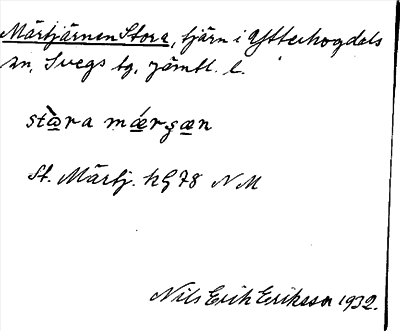 Märtjärnen Stora, tjärn i Ytterhogdals
sn, Svegs tg, Jämtl. l.
stòra mǽrşæn
St. Märtj. kG78 NM
Nils Erik Eriksson 1932.